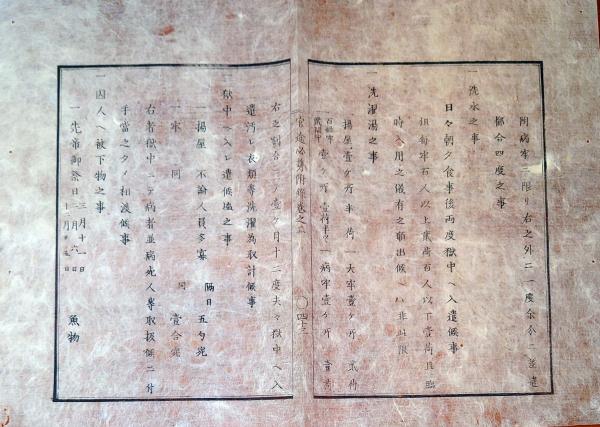 附病牢ニ限リ右之外ニ一度余分ニ差遣
都合四度之事
一洗水之事
日々朝夕食事後両度獄中ヘ入遣候事
但毎牢百人以上弐荷百人以下壹荷且臨
時入用之儀有之願出候ヘハ非時限
一洗濯湯之事
揚屋壹ケ所半荷 大牢壹ケ所弐荷
百姓牢 壹ケ所壹荷半ツヽ 病牢壹ケ所壹荷
官途必携附録巻之五 〇四十三
右之割合ニテ壹ケ月十二度夫々獄中ヘ入
遣汚レ衣類等洗濯為取計候事
一獄中ヘ入レ遣候塩之事
一揚屋 不論人員多寡 隔日五夕宛
一牢 同 同壹合宛
右者獄中ニテ病者並病死人等取扱候ニ付
手当之タメ相渡候事
一囚人ヘ被下物之事
一先帝御祭日 魚物